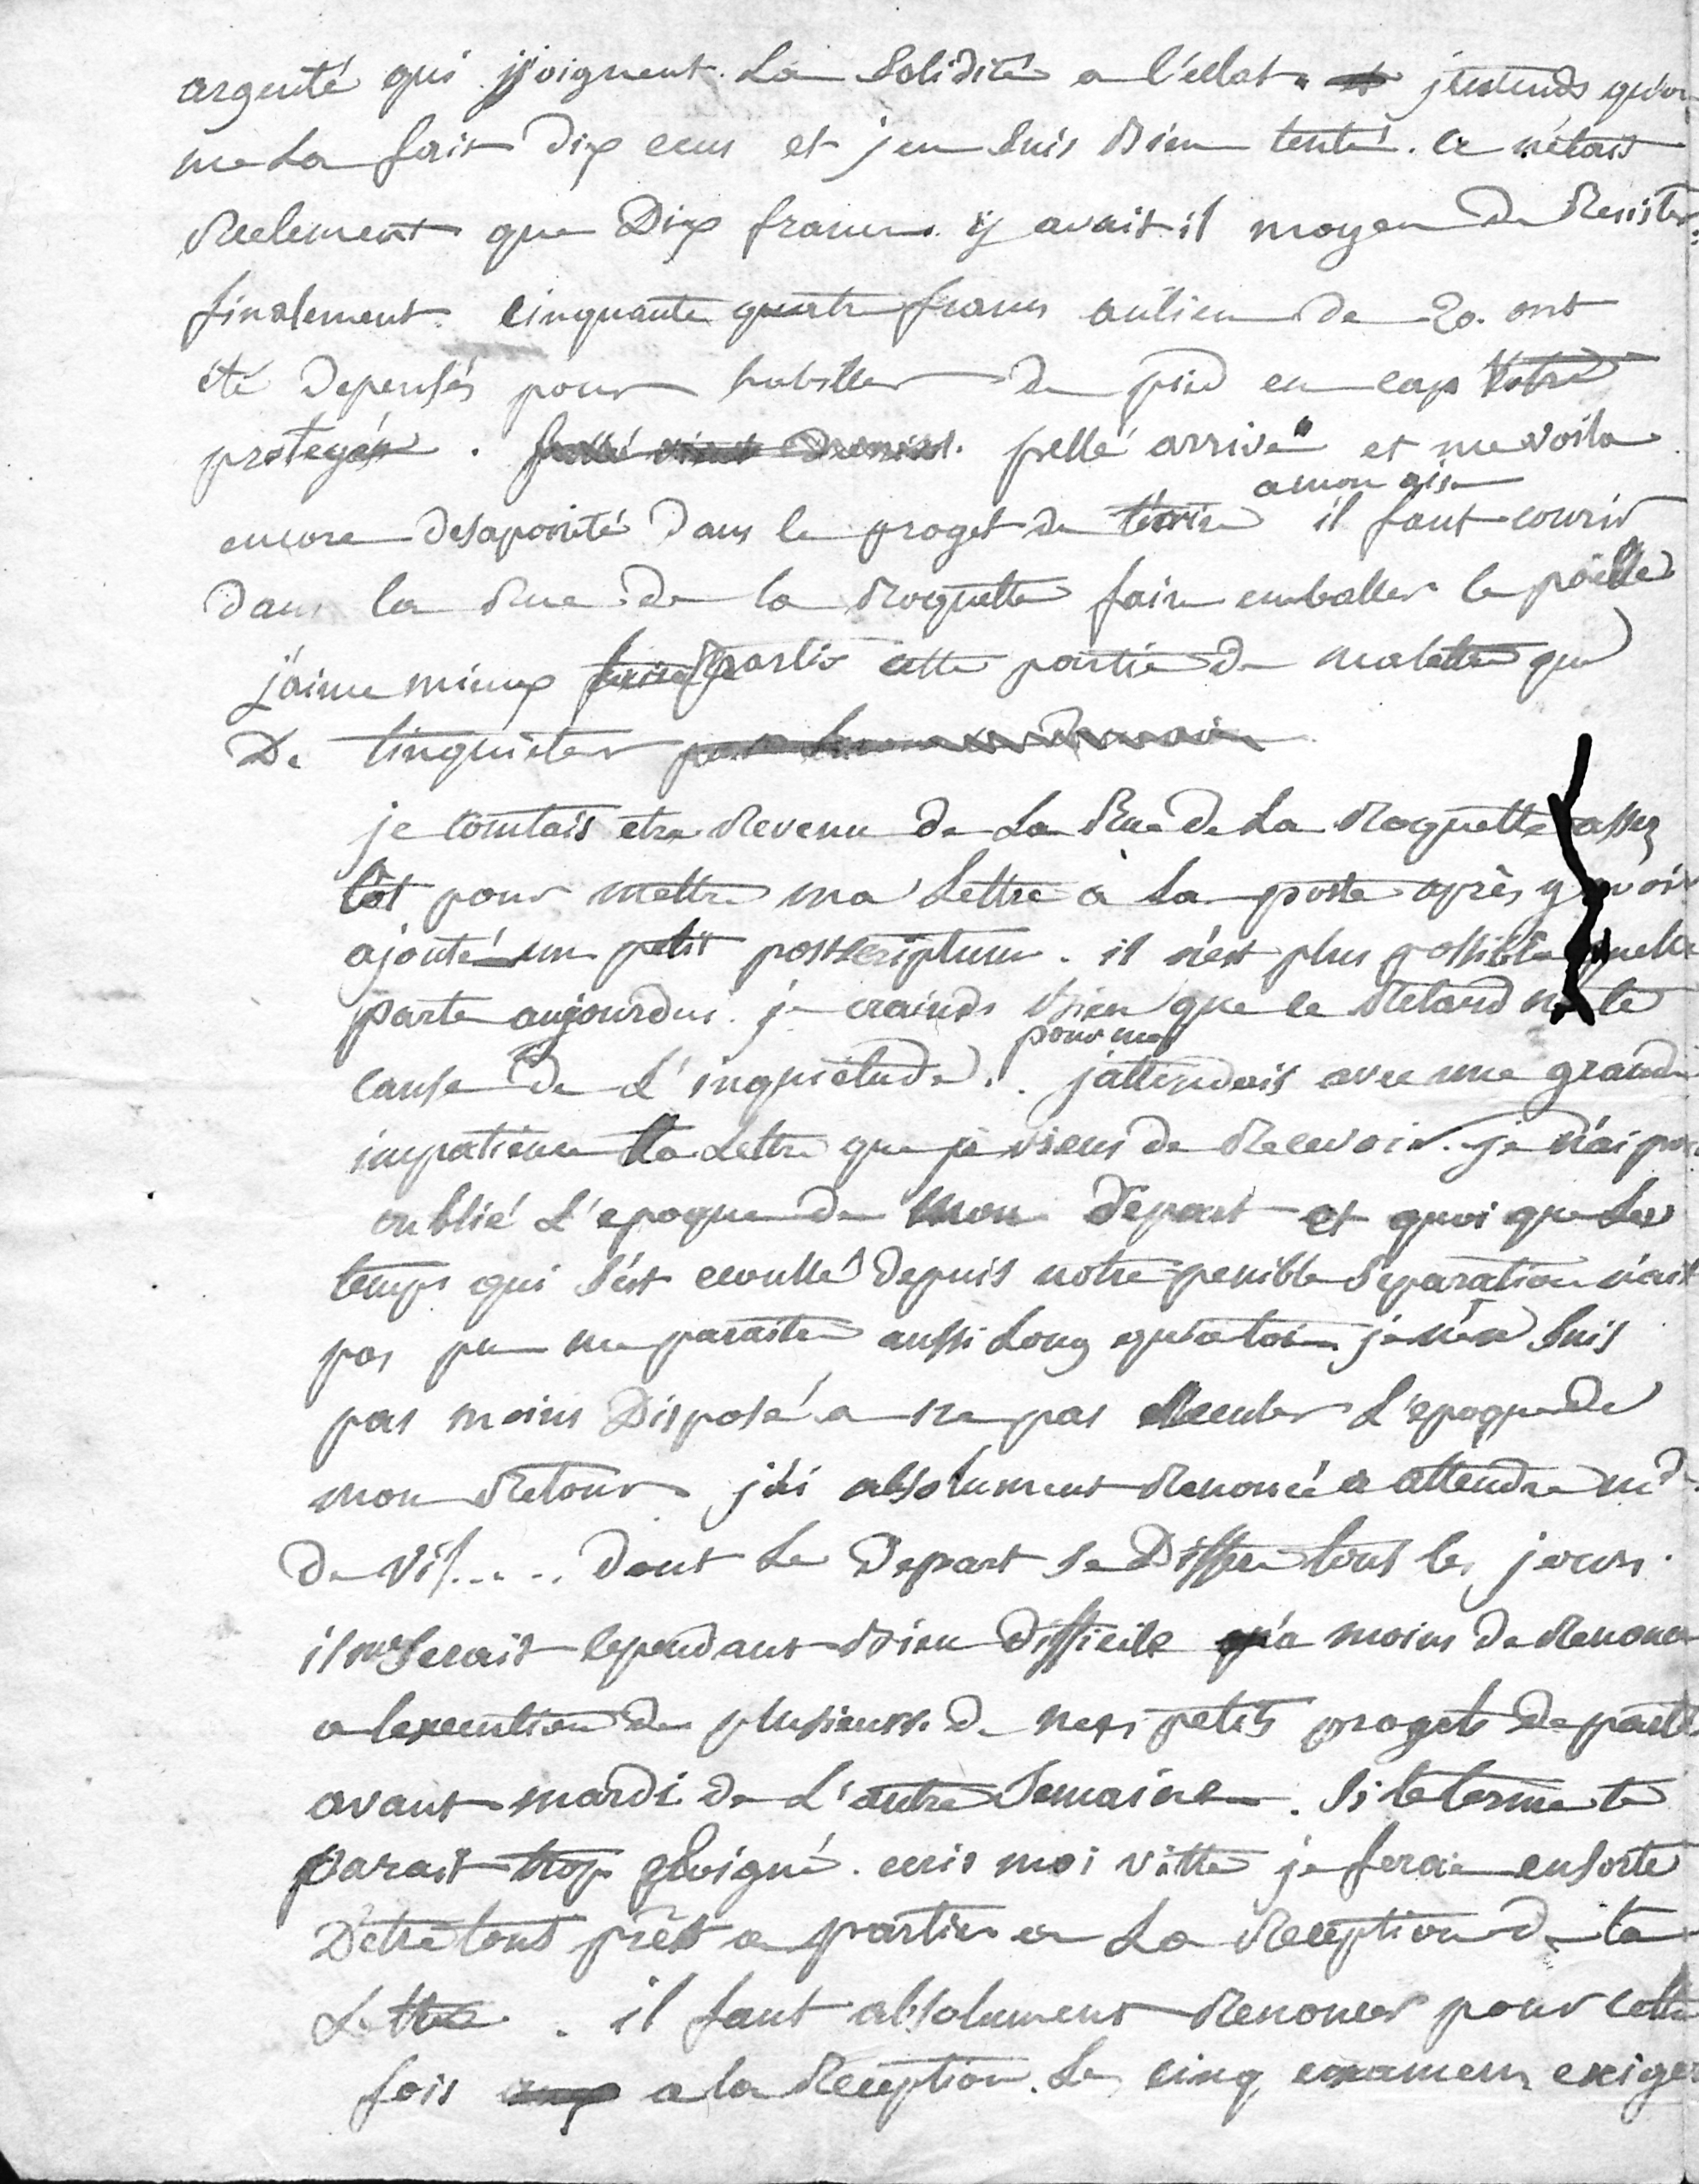 argenté qui joignent La Solidité a l'eclat. j'entends qu'on
me La fait dix ecus et j'en suis bien tenté. ce n'etait
Reelement que Dix francs. y avait il moyen de Resister.
finalement. cinquante quatre francs aulieu de 20. ont
été depensés pour habiller de pied en cap Votre
protegée. pellé arrive et me voila
encore desaponté dans le proget de t'ecrire a mon aise il faut courir
dans la Rue de la Roquette faire emballer le poëlle
j'aime mieux partir cette partie de malette que
De t'inquieter
je comtais etre Revenu de La Rue de La Roquette assez
tôt pour mettre ma Lettre à La poste après y avoir
ajouté un petit postscriptum. il n'est plus possible quelle
parte aujourdui. je crains bien que ce Retard ne te
cause de L'inquiétude. pour moi j'attendais avec une grande
impatience ta Lettre que je viens de Recevoir. je n'ai pas
oublié L'epoque de Mon Départ et quoi que Le
temps qui s'est ecoullé depuis notre penible Separation n'ait
pas pu me paraitre aussi Long qu'a toi je n'en suis
pas moins Disposé a ne pas Reculer L'epoque de
mon Retour j'ai absolument Renoncé a attendre md
de Vil..... dont Le Depart se Differe tous les jours.
il me Serait cependant bien difficile a moins de Renoncer
a l'execution de plusieurs de mes petits progets de partir
avant mardi de L'autre Semaine. Si le terme te
parait trop eloigné. ecris moi vitte je ferai ensorte
D'etre tout prêt a partir a La Reception de ta
Lettre. il faut absolument Renoncer pour cette
fois a la Reception. Les cinq examens exiges